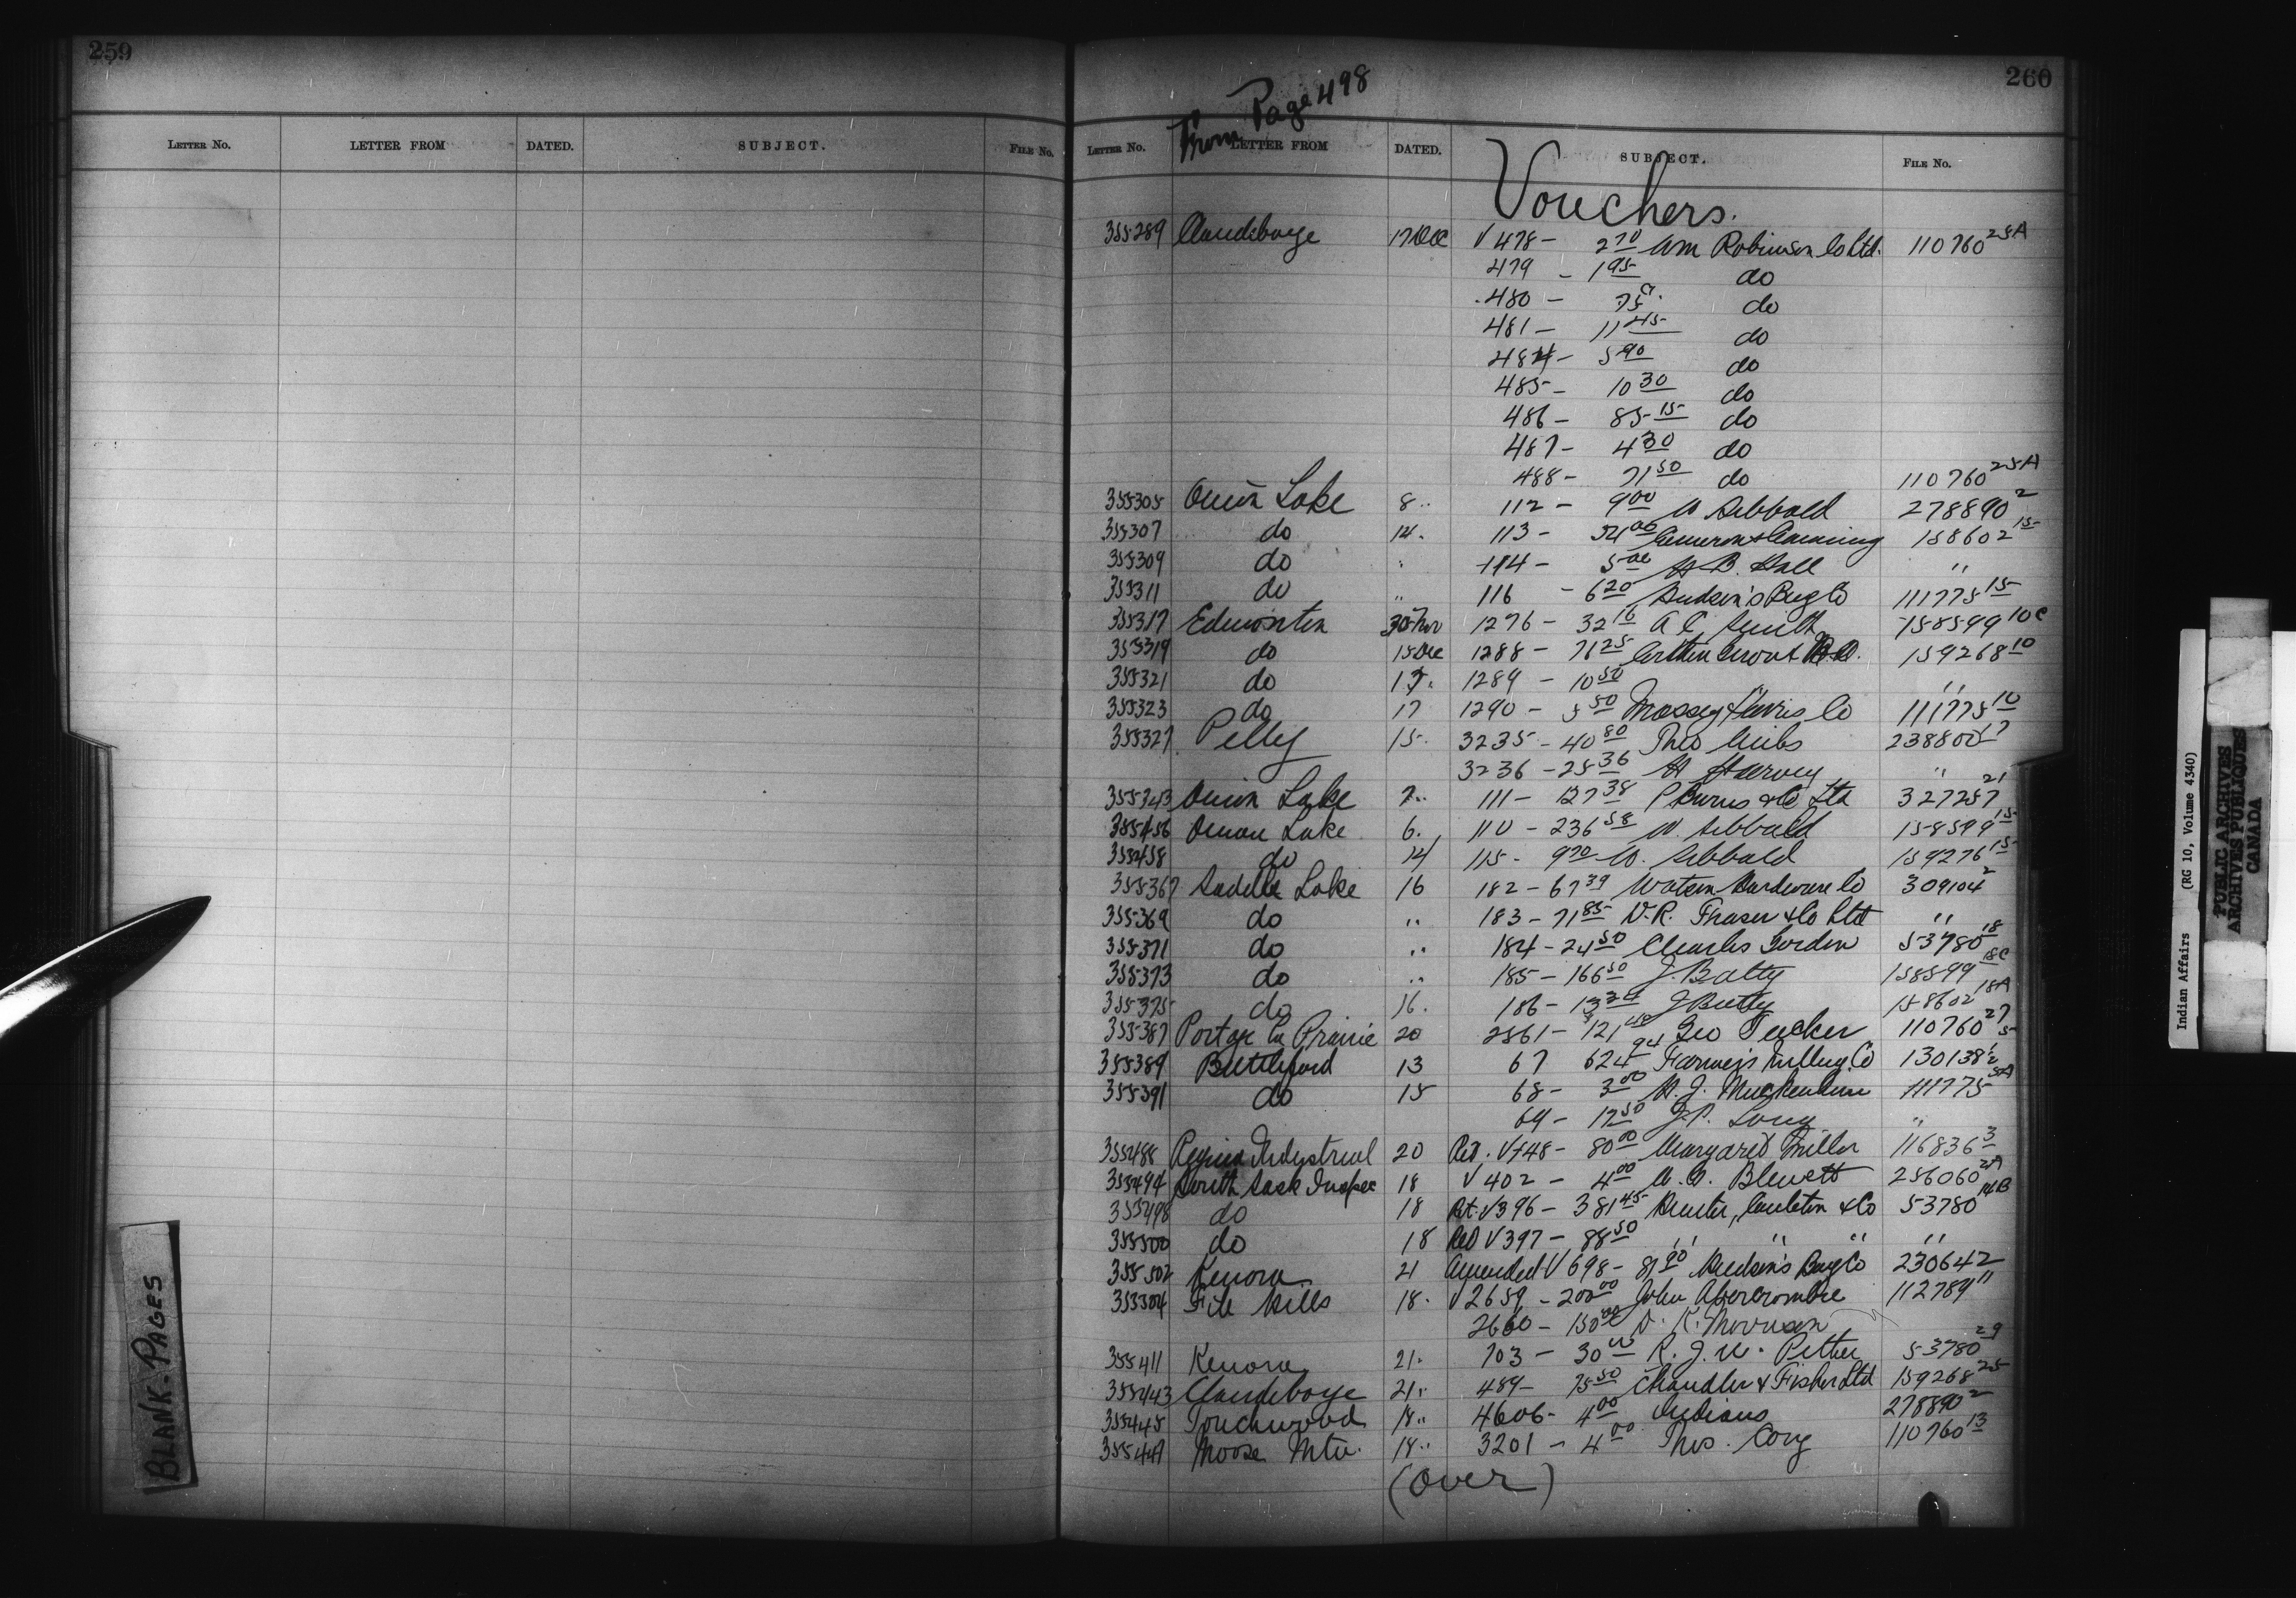 259
LETTER NO. LETTER FROM DATED. SUBJECT. FILE NO.
BLANK-PAGES
260
From Page 498
LETTER NO. LETTER FROM DATED. SUBJECT. FILE NO.
Vouchers.
355289 Clandeboye 17 Dec V 478 - 2 70 Wm Robinson Co Ltd. 110760 25A
479 - 1 95 do
480 - 75 c. do
481 - 11 45 do
484 - 5 90 do
485 - 10 30 do
486 - 85 15 do
487 - 4 30 do
488 - 71 50 do 110760 25A
355305 Onion Lake 8 " 112 - 9 00 W Sibbald 278890 2
355307 do 14 . 113 - 54 00 158602 15
355309 do " 114 - 5 00 H B. Hall "
355311 do " 116 - 6 20 Hudson's Bay Co 111775 15
355317 Edmonton 30 Nov 1276 - 32 16 A E Smith 158599 10C
355319 do 15 Dec 1288 - 71 25 159268 10
355321 do 1289 - 10 50 "
355323 do 17 1290 - 5 50 Massey Harris Co 111775 10
355327 Pelly 15 . 3235 - 40 80 Theo 238800 17
3236 - 25 36 H Harvey "
355343 Onion Lake 7 .. 111 - 127 38 P Burns & Co Ltd 327257 21
355456 Onion Lake 6 . 110 - 236 58 W. Sibbald 158599 15
355458 do 14 115 - 9 70 W. Sibbald 159276 15
355367 Saddle Lake 16 182 - 67 39 Watson Hardware Co 309104 2
355369 do " 183 - 71 85 D.R. Fraser & Co Ltd "
355371 do " 184 - 24 50 Charles Gordon 53780 18
355373 do " 185 - 166 50 J. Batty 158599 18C
355375 do 16 . 186 - J Batty 158602 18A
355387 Portage La Prairie 20 2561 - 121 Geo Tucker 110760 27
355389 Battleford 13 67 624 94 Farmer's Milling Co 130138
355391 do 15 68 - 3 00 H. J. 111775 5A
69 - 17 50 J.P. Long "
355488 Regina Industrial 20 Ret. V 748 - 80 00 Margaret Miller 116836 3
355494 South Sask Inspec 18 V 402 - 4 00 Blewett 256060 2A
355498 do 18 Ret. V 396 - 381 45 Carleton & Co 53780 14B
355500 do 18 Ret V 397 - 88 50 " " " "
355502 Kenora 21 Amended V 698 - 81 90 Hudson's Bay Co 230642
355504 File Hills 18 . V 2659 - 200 00 John Abercrombie 112789 11
2660 - 150 00 D. K. Morrison
355411 Kenora 21 . 703 - 30 00 R. J. N. Pither 53780 29
355443 Clandeboye 21 . 489 - 75 50 Chandler & Fisher Ltd 159268 25
355445 Touchwood 18 .. 4606 - 4 00 Indians 278890 2
355449 Moose Mtn. 18 .. 3201 - 4 00 Thos. Cory 110760 13
(over)
Indian Affairs (RG 10, Volume 4340)
PUBLIC ARCHIVES
ARCHIVES PUBLIQUES
CANADA